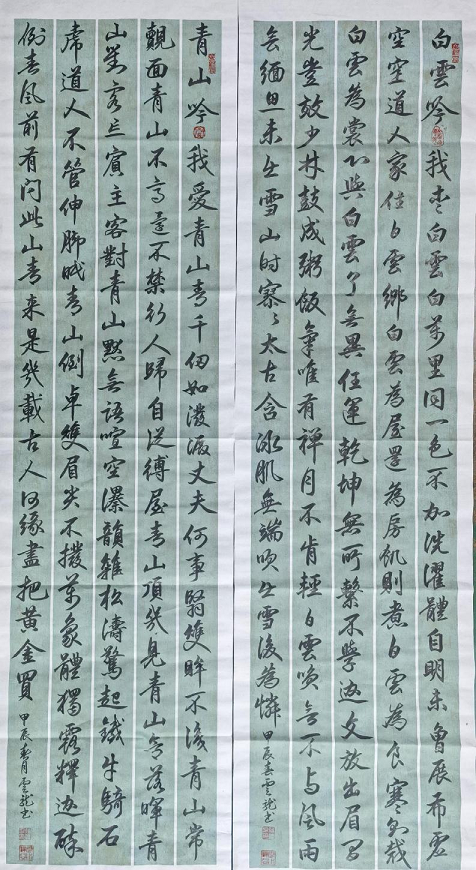 白雲吟 我愛白雲白萬里同一色不加洗濯體自明未曾展希虛
空空道人家住白雲鄉白雲為屋還為房飢則煮白雲為食寒則裁
白雲為裳即與白雲了無異任運乾坤無所繫不學迦文放出眉間
光豈效少林鼓成粥飯氣唯有禪月不肯輕白雲喚無不與風雨
會緬思未出雪山時寥寥太古含冰肌無端吹出雪後為憐 甲辰春雲龍書
青山吟 我愛青山青千仞如潑澱丈夫何事豎雙眸不後青山常
覿面青山不高還不禁行人歸自從縛屋青山頂幾見青山無落暉青
山對客忘賓主客對青山默無語喧空瀑韻雜松濤驚起鐵牛騎石
虎道人不管伸腳眠青山倒卓雙眉尖不撥萬象體獨露釋迦醉
倒春風前有問此山青來是幾載古人何緣盡把黃金買 甲辰春月雲龍書